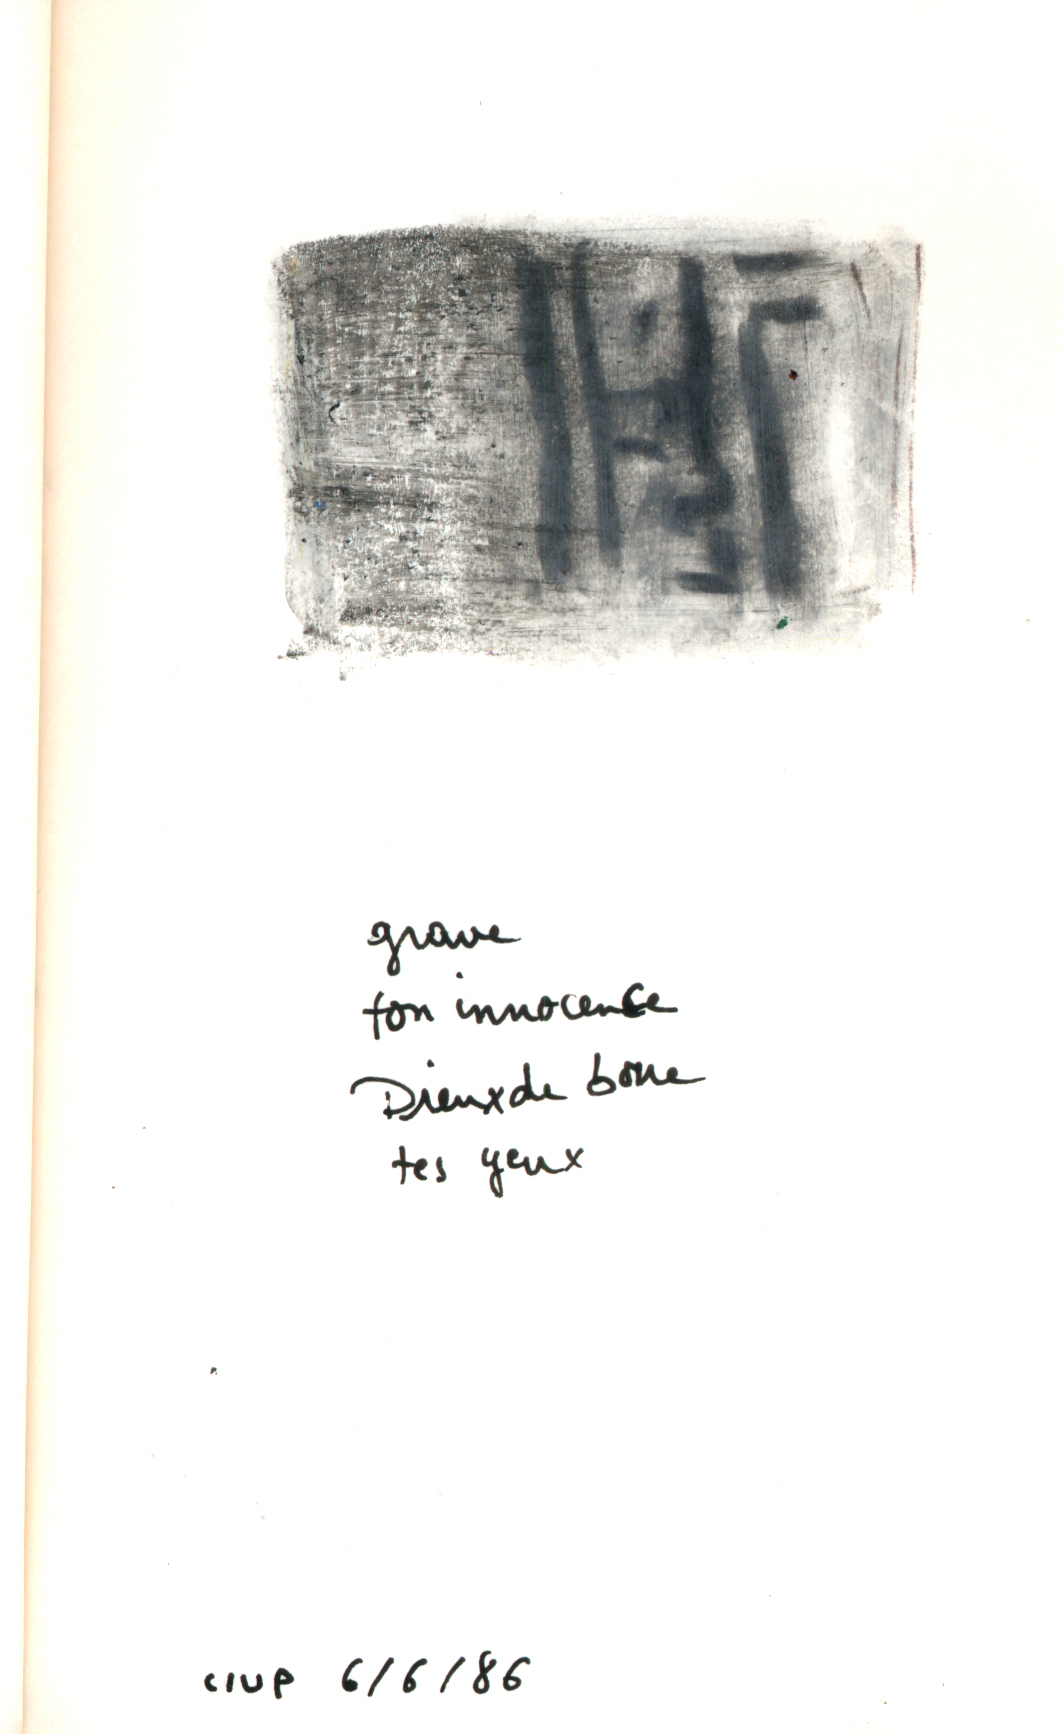 grave
ton innocence
Dieux de boue
tes yeux
CIUP 6/6/86